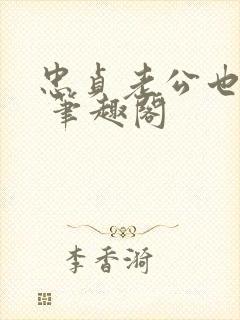 忠贞老公也
笔趣阁
李香漪